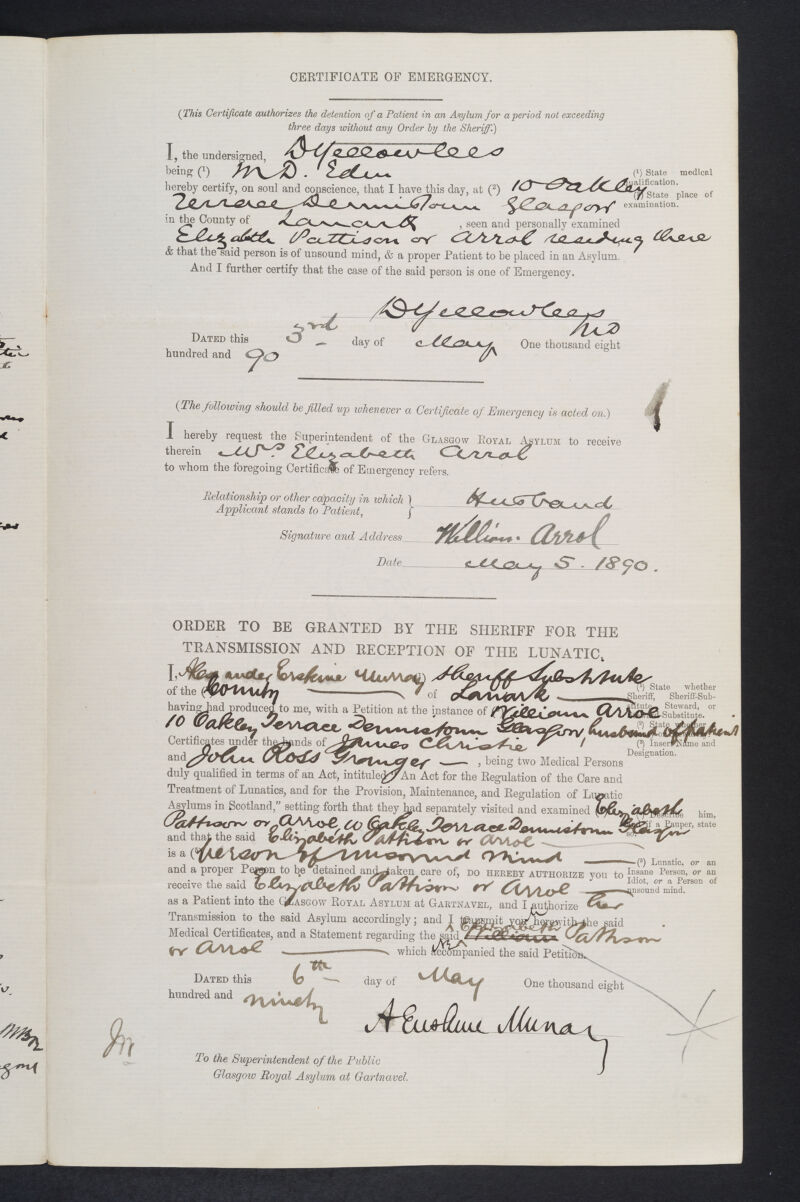 CERTIFICATE OF EMERGENCY.
(This Certificate authorizes the detention of a Patient in an Asylum for a period not exceeding
three days without any Order by the Sheriff.)
I, the undersigned, D Yellowlees
being (¹) M.D. Edin
(¹) State medical
qualification.
hereby certify, on soul and conscience, that I have this day, at (²) 10 Oakley
(²) State place of
examination.
Terrace Dennistoun Glasgow
in the County of Lanark, seen and personally examined
Elizabeth Pattison or Arrol residing there
& that the said person is of unsound mind, & a proper Patient to be placed in an Asylum.
And I further certify that the case of the said person is one of Emergency.
D Yellowlees
MD
DATED this 3rd day of May One thousand eight
hundred and 90
(The following should be filled up whenever a Certificate of Emergency is acted on.)
I hereby request the Superintendent of the GLASGOW ROYAL ASYLUM to receive
therein Mrs Elizabeth Arrol
to whom the foregoing Certificate of Emergency refers.
Relationship or other capacity in which } Husband
Applicant stands to Patient,
Signature and Address William Arrol
Date May 5. 1890.
ORDER TO BE GRANTED BY THE SHERIFF FOR THE
TRANSMISSION AND RECEPTION OF THE LUNATIC.
I, Alexander Erskine Murray (¹) Sheriff Substitute
of the (²) County of Lanark
(¹) State whether
Sheriff, Sheriff-Sub-
stitute, Steward, or
Substitute.
having had produced to me, with a Petition at the instance of (³) William Arrol
10 Oakley Terrace Dennistoun Glasgow, husband of patient
(³) Insert Name and
Designation.
Certificates under the hands of James Christie
and John Ross Granger, being two Medical Persons
duly qualified in terms of an Act, intituled "An Act for the Regulation of the Care and
Treatment of Lunatics, and for the Provision, Maintenance, and Regulation of Lunatic
Asylums in Scotland," setting forth that they had separately visited and examined Elizabeth
Pattison or Arrol, 10 Oakley Terrace Dennistoun Glasgow
Describe him,
if a Pauper, state
so.
and that the said Elizabeth Pattison or Arrol
is a (⁵) person of unsound mind
(⁵) Lunatic, or an
Insane Person, or an
Idiot, or a Person of
unsound mind.
and a proper Person to be detained and taken care of, DO HEREBY AUTHORIZE you to
receive the said Elizabeth Pattison or Arrol
as a Patient into the GLASGOW ROYAL ASYLUM AT GARTNAVEL, and I authorize her
Transmission to the said Asylum accordingly; and I transmit you herewith the said
Medical Certificates, and a Statement regarding the said Elizabeth William Pattison
or Arrol which accompanied the said Petition.
DATED this 6th day of May One thousand eight
hundred and ninety
A Erskine Murray
To the Superintendent of the Public
Glasgow Royal Asylum at Gartnavel.